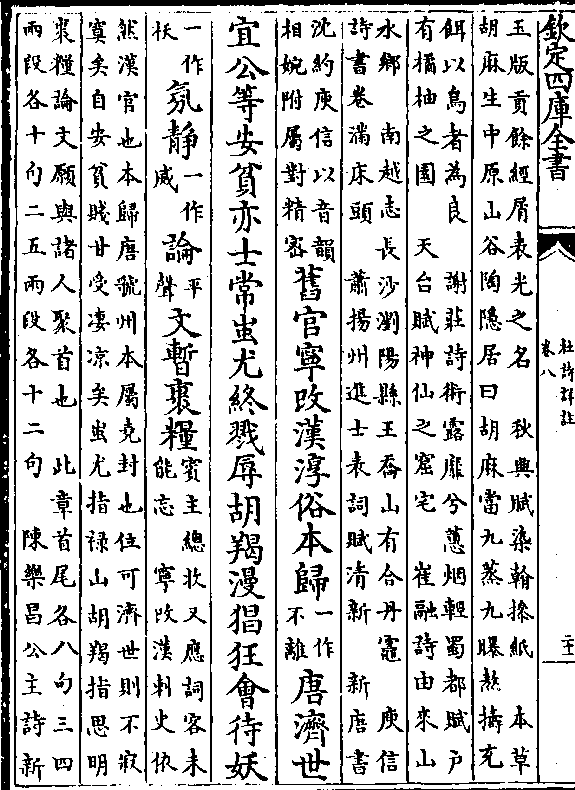 欽定四庫全書
杜詩詳註
卷八
二十
玉版貢餘經屑表光之名　秋興賦染翰操紙　本草
胡麻生中原山谷陶隱居曰胡麻當九蒸九曝熬擣充
餌以烏者為良　謝莊詩術露靡兮蕙烟輕蜀都賦户
有橘柚之園　天台賦神仙之窟宅　崔融詩由來山
水鄉　南越志長沙瀏陽縣王喬山有合丹竈　庾信
詩書卷滿床頭　蕭揚州進士表詞賦清新　新唐書
沈約庾信以音韻
相婉附屬對精密舊官寧改漢淳俗本歸一作
不離唐濟世
宜公等安貧亦士常蚩尤終戮辱胡羯漫猖狂會待妖
一作
祅氛靜一作
威論平
聲文暫裹糧賓主總收又應詞客未
能忘　寧改漢刺史依
然漢官也本歸唐虢州本屬堯封也位可濟世則不寂
寞矣自安貧賤甘受凄凉矣蚩尤指祿山胡羯指思明
裹糧論文願與諸人聚首也　此章首尾各八句三四
兩段各十句二五兩段各十二句　陳樂昌公主詩新